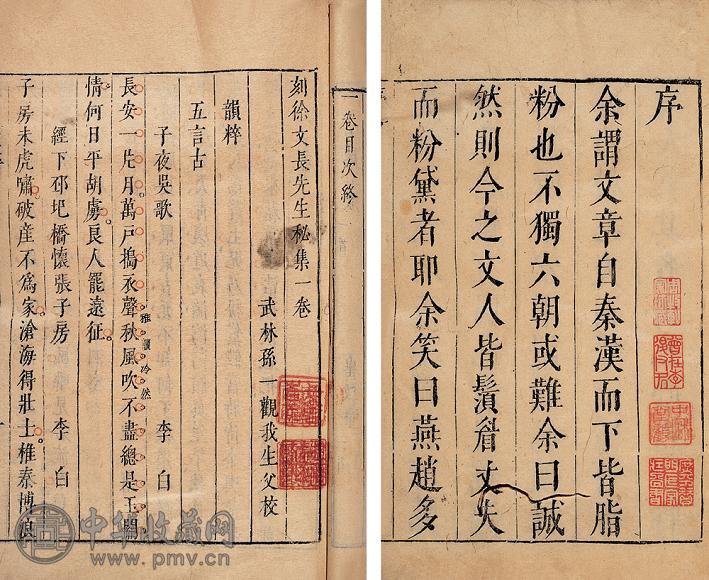 序
余謂文章自秦漢而下皆脂
粉也不獨六朝或難余曰誠
然則今之文人皆鬚眉丈夫
而粉黛者耶余笑曰燕趙多
一卷目次終
刻徐文長先生秘集一卷
武林孫一觀我生父校
韻粹
五言古
子夜吳歌 李白
長安一片月萬戶搗衣聲秋風吹不盡總是玉關
雅 冷然
情何日平胡虜良人罷遠征
經下邳圯橋懷張子房 李白
子房未虎嘯破産不爲家滄海得壯士椎秦博浪
中华收藏网
www.pmv.cn